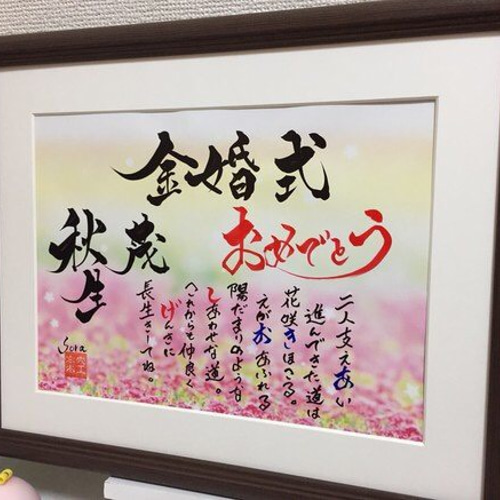 金婚式
おめでとう
茂
秋生
二人支えあい
進んできた道は
花咲きほこる。
えがおあふれる
陽だまりのような
しあわせな道。
これからも仲良く
げんきに
長生きしてね。
Sora